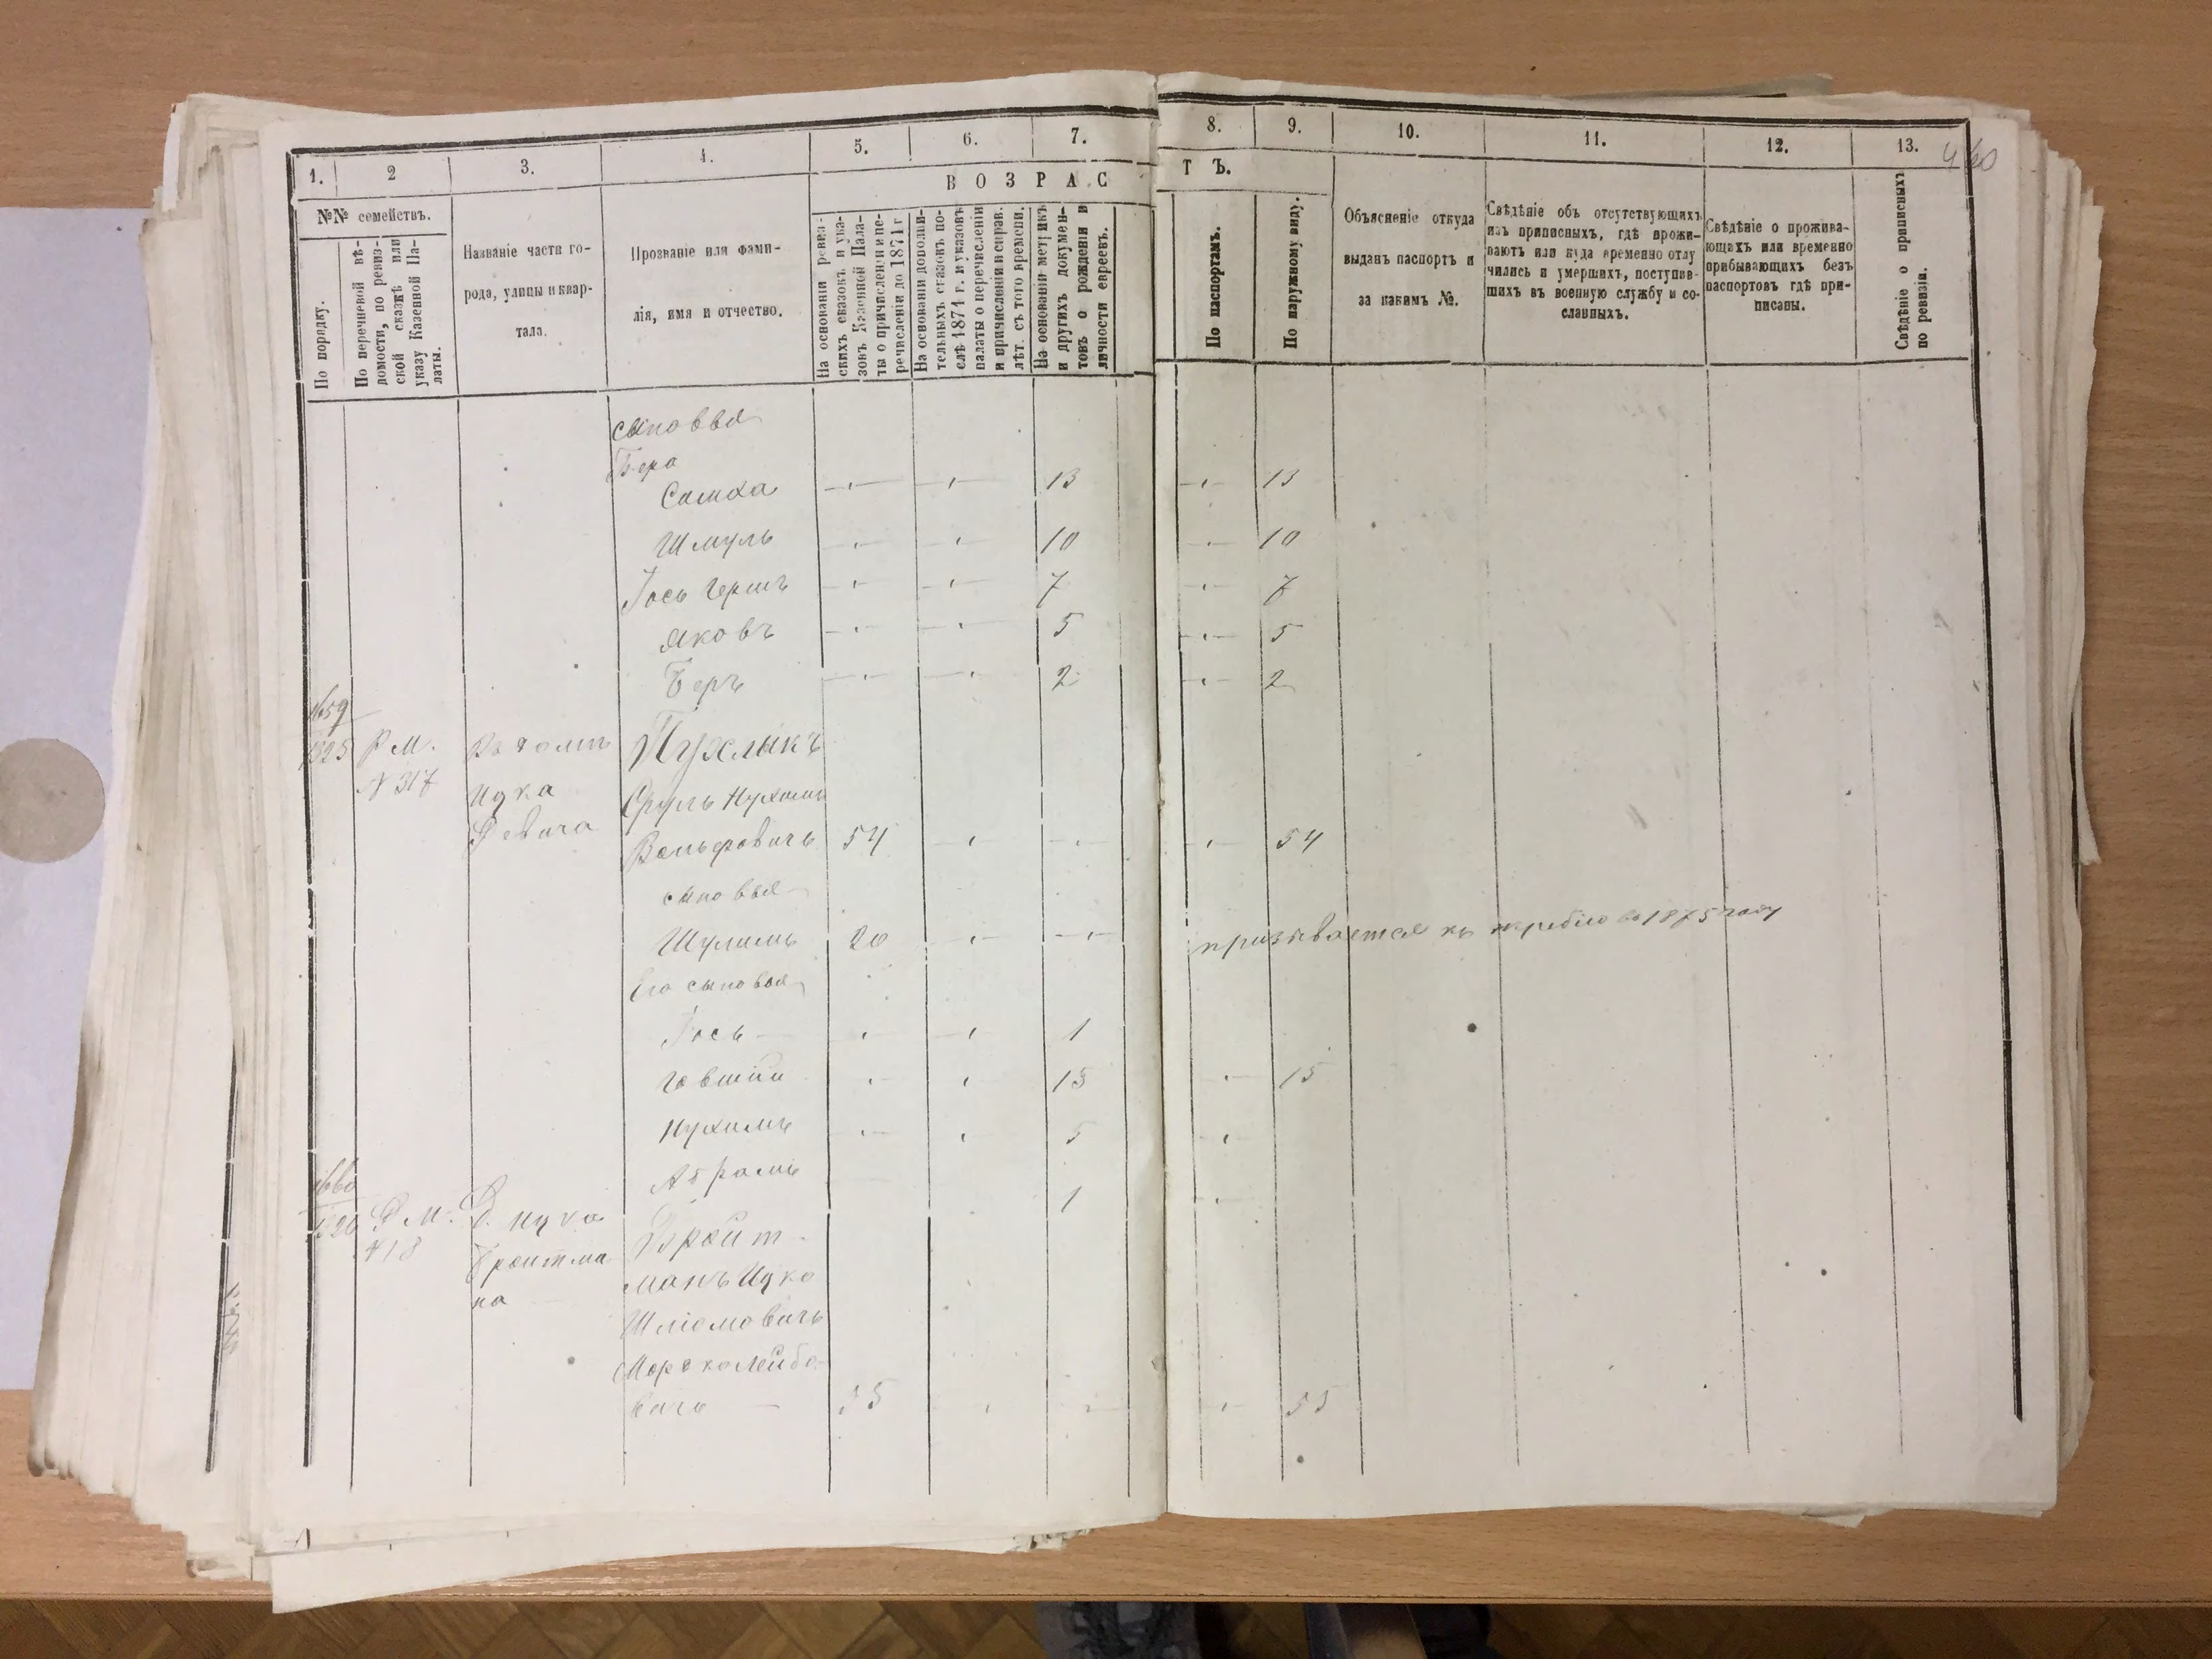 1. 2 3. 4. 5. 6. 7. 8. 9. 10. 11. 12. 13.
460
В О З Р А С Т Ъ.
№№ семействъ.
По порядку.
По перечневой вѣ-
домости, по ревиз-
ской сказкѣ или
указу Казенной Па-
латы.
Названіе части го-
рода, улицы и квар-
тала.
Прозваніе или фами-
лія, имя и отчество.
На основаніи ревиз-
скихъ сказокъ и ука-
зовъ Казенной Пала-
ты о причисленіи и пе-
речисленіи до 1871 г
На основаніи дополни-
тельныхъ сказокъ по-
слѣ 1871 г. и указовъ
палаты о перечисленіи
и причисленіи и справ.
лѣт. съ того времени.
На основаніи метрикъ
и другихъ докумен-
товъ о рожденіи и
личности евреевъ.
По паспортамъ.
По наружному виду.
Объясненіе откуда
выданъ паспортъ и
за какимъ №.
Свѣдѣніе объ отсутствующихъ
изъ приписныхъ, гдѣ прожи-
ваютъ или куда временно отлу
чились и умершихъ, поступив-
шихъ въ военную службу и со-
сланныхъ.
Свѣдѣніе о прожива-
ющихъ или временно
прибывающихъ безъ
паспортовъ гдѣ при-
писаны.
Свѣдѣніе о приписныхъ
по ревизіи.
сыновья
Бера
Симха 13 13
Шмуль 10 10
Іось Гершъ 7 7
Яковъ 5 5
Беръ 2 2
1659
1325 Р М. Въ домѣ Пухлыкъ
N 317 Ицка Сруль Нухимъ
Вольфовичъ 54 54
сыновья
Шулимъ 20 призывается къ жребію въ 1875 году
Его сыновья
Іось 1
Говшій 15 15
Нухимъ 5
Абрамъ 1
1660
1326 Р М. Д. Ицка Бройт-
N 18 Бройтма манъ Ицко
на Шліомовичъ
Мордколейбо-
вичъ 55 55